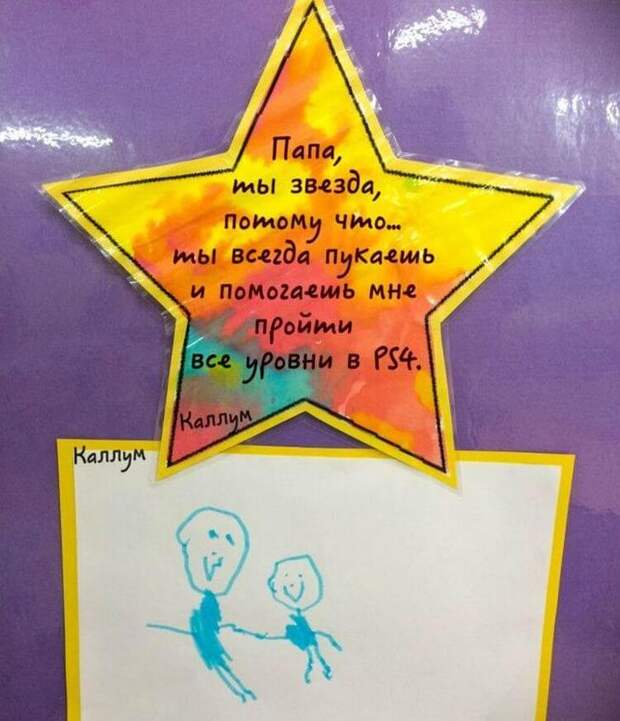 Папа,
ты звезда,
потому что...
ты всегда пукаешь
и помогаешь мне
пройти
все уровни в PS4.
Каллум
Каллум